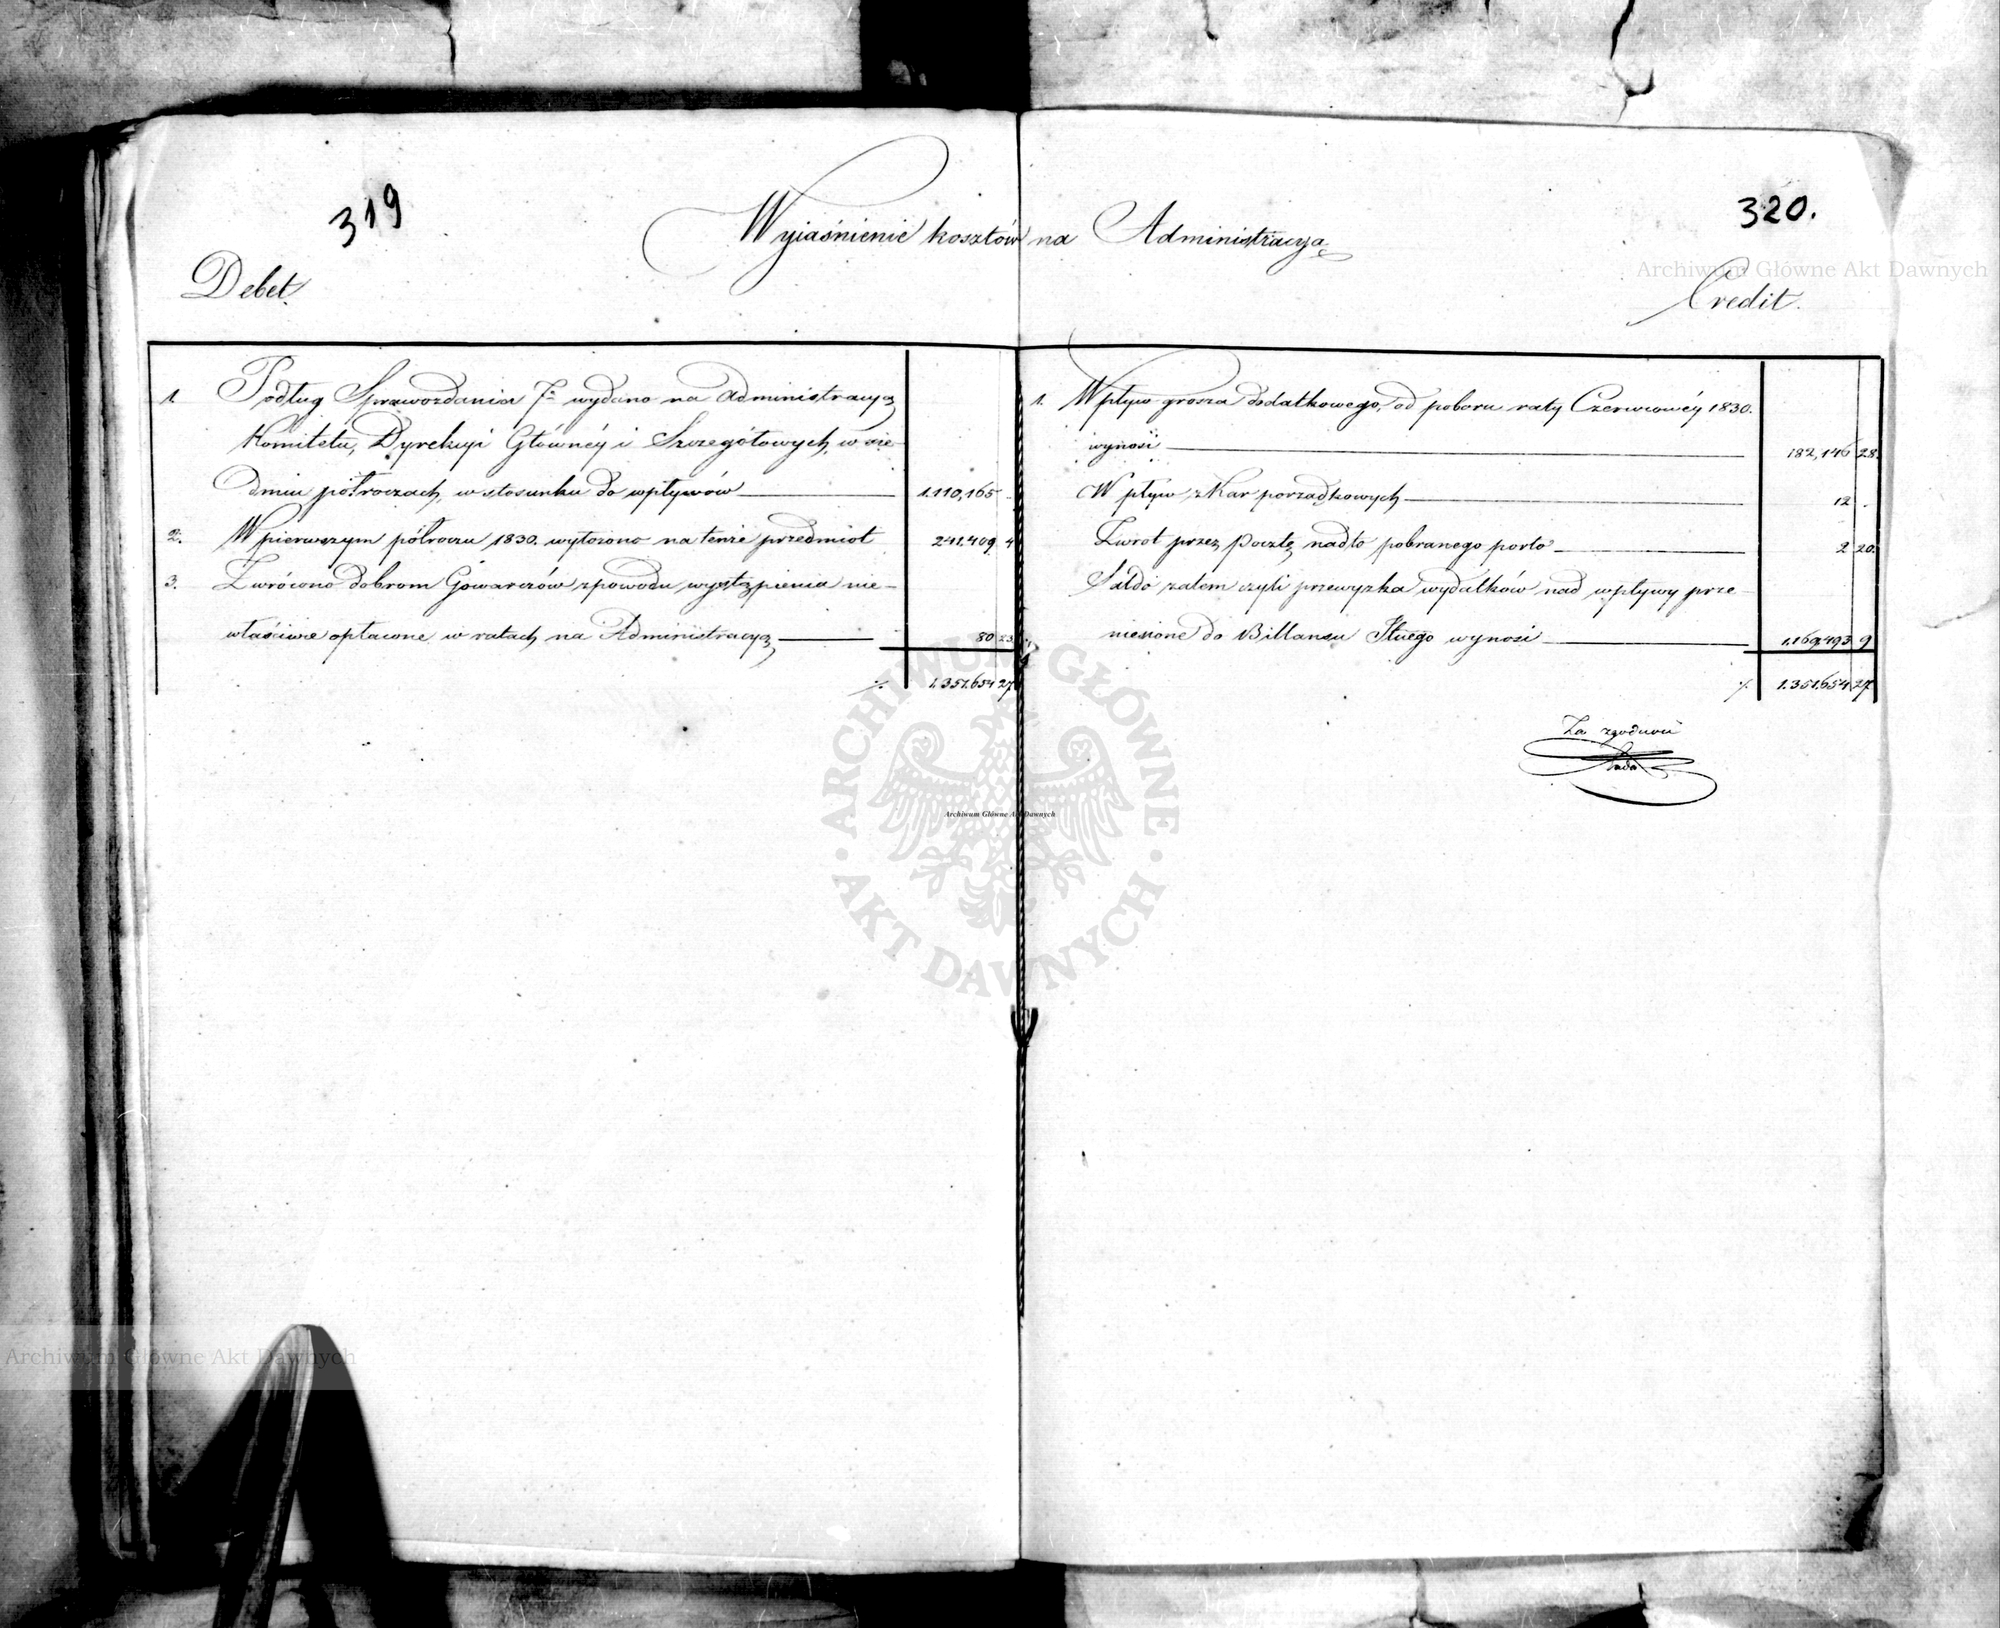 319
320.
Wyiaśnienie kosztów na Administracyą
Debet.
Credit.
1. Podług Sprawozdania 7o wydano na Administracyą
Komitetu, Dyrekcyi Głównéy i Szczegółowych, w sie-
dmiu półroczach, w stosunku do wpływów 1.110,165 .
2. W pierwszym półroczu 1830. wyłożono na tenże przedmiot 241.409 4
3. Zwrócono dobrom Gowarczów z powodu wystąpienia nie-
właściwie opłacone w ratach na Administracyą 80 23
./. 1.351.654 27
1. Wpływ grosza dodatkowego, od poboru raty Czerwcowéy 1830.
wynosi 182,146 28.
Wpływ z Kar porządkowych 12 .
Zwrot przez Pocztę nadto pobranego porto 2 20.
Saldo zatem czyli przewyżka wydatków nad wpływy prze-
niesione do Billansu wynosi 1.169.493 9
./. 1.351.654 27
Za zgodność
Archiwum Główne Akt Dawnych
ARCHIWUM GŁÓWNE
Archiwum Główne Akt Dawnych
AKT DAWNYCH
Archiwum Główne Akt Dawnych